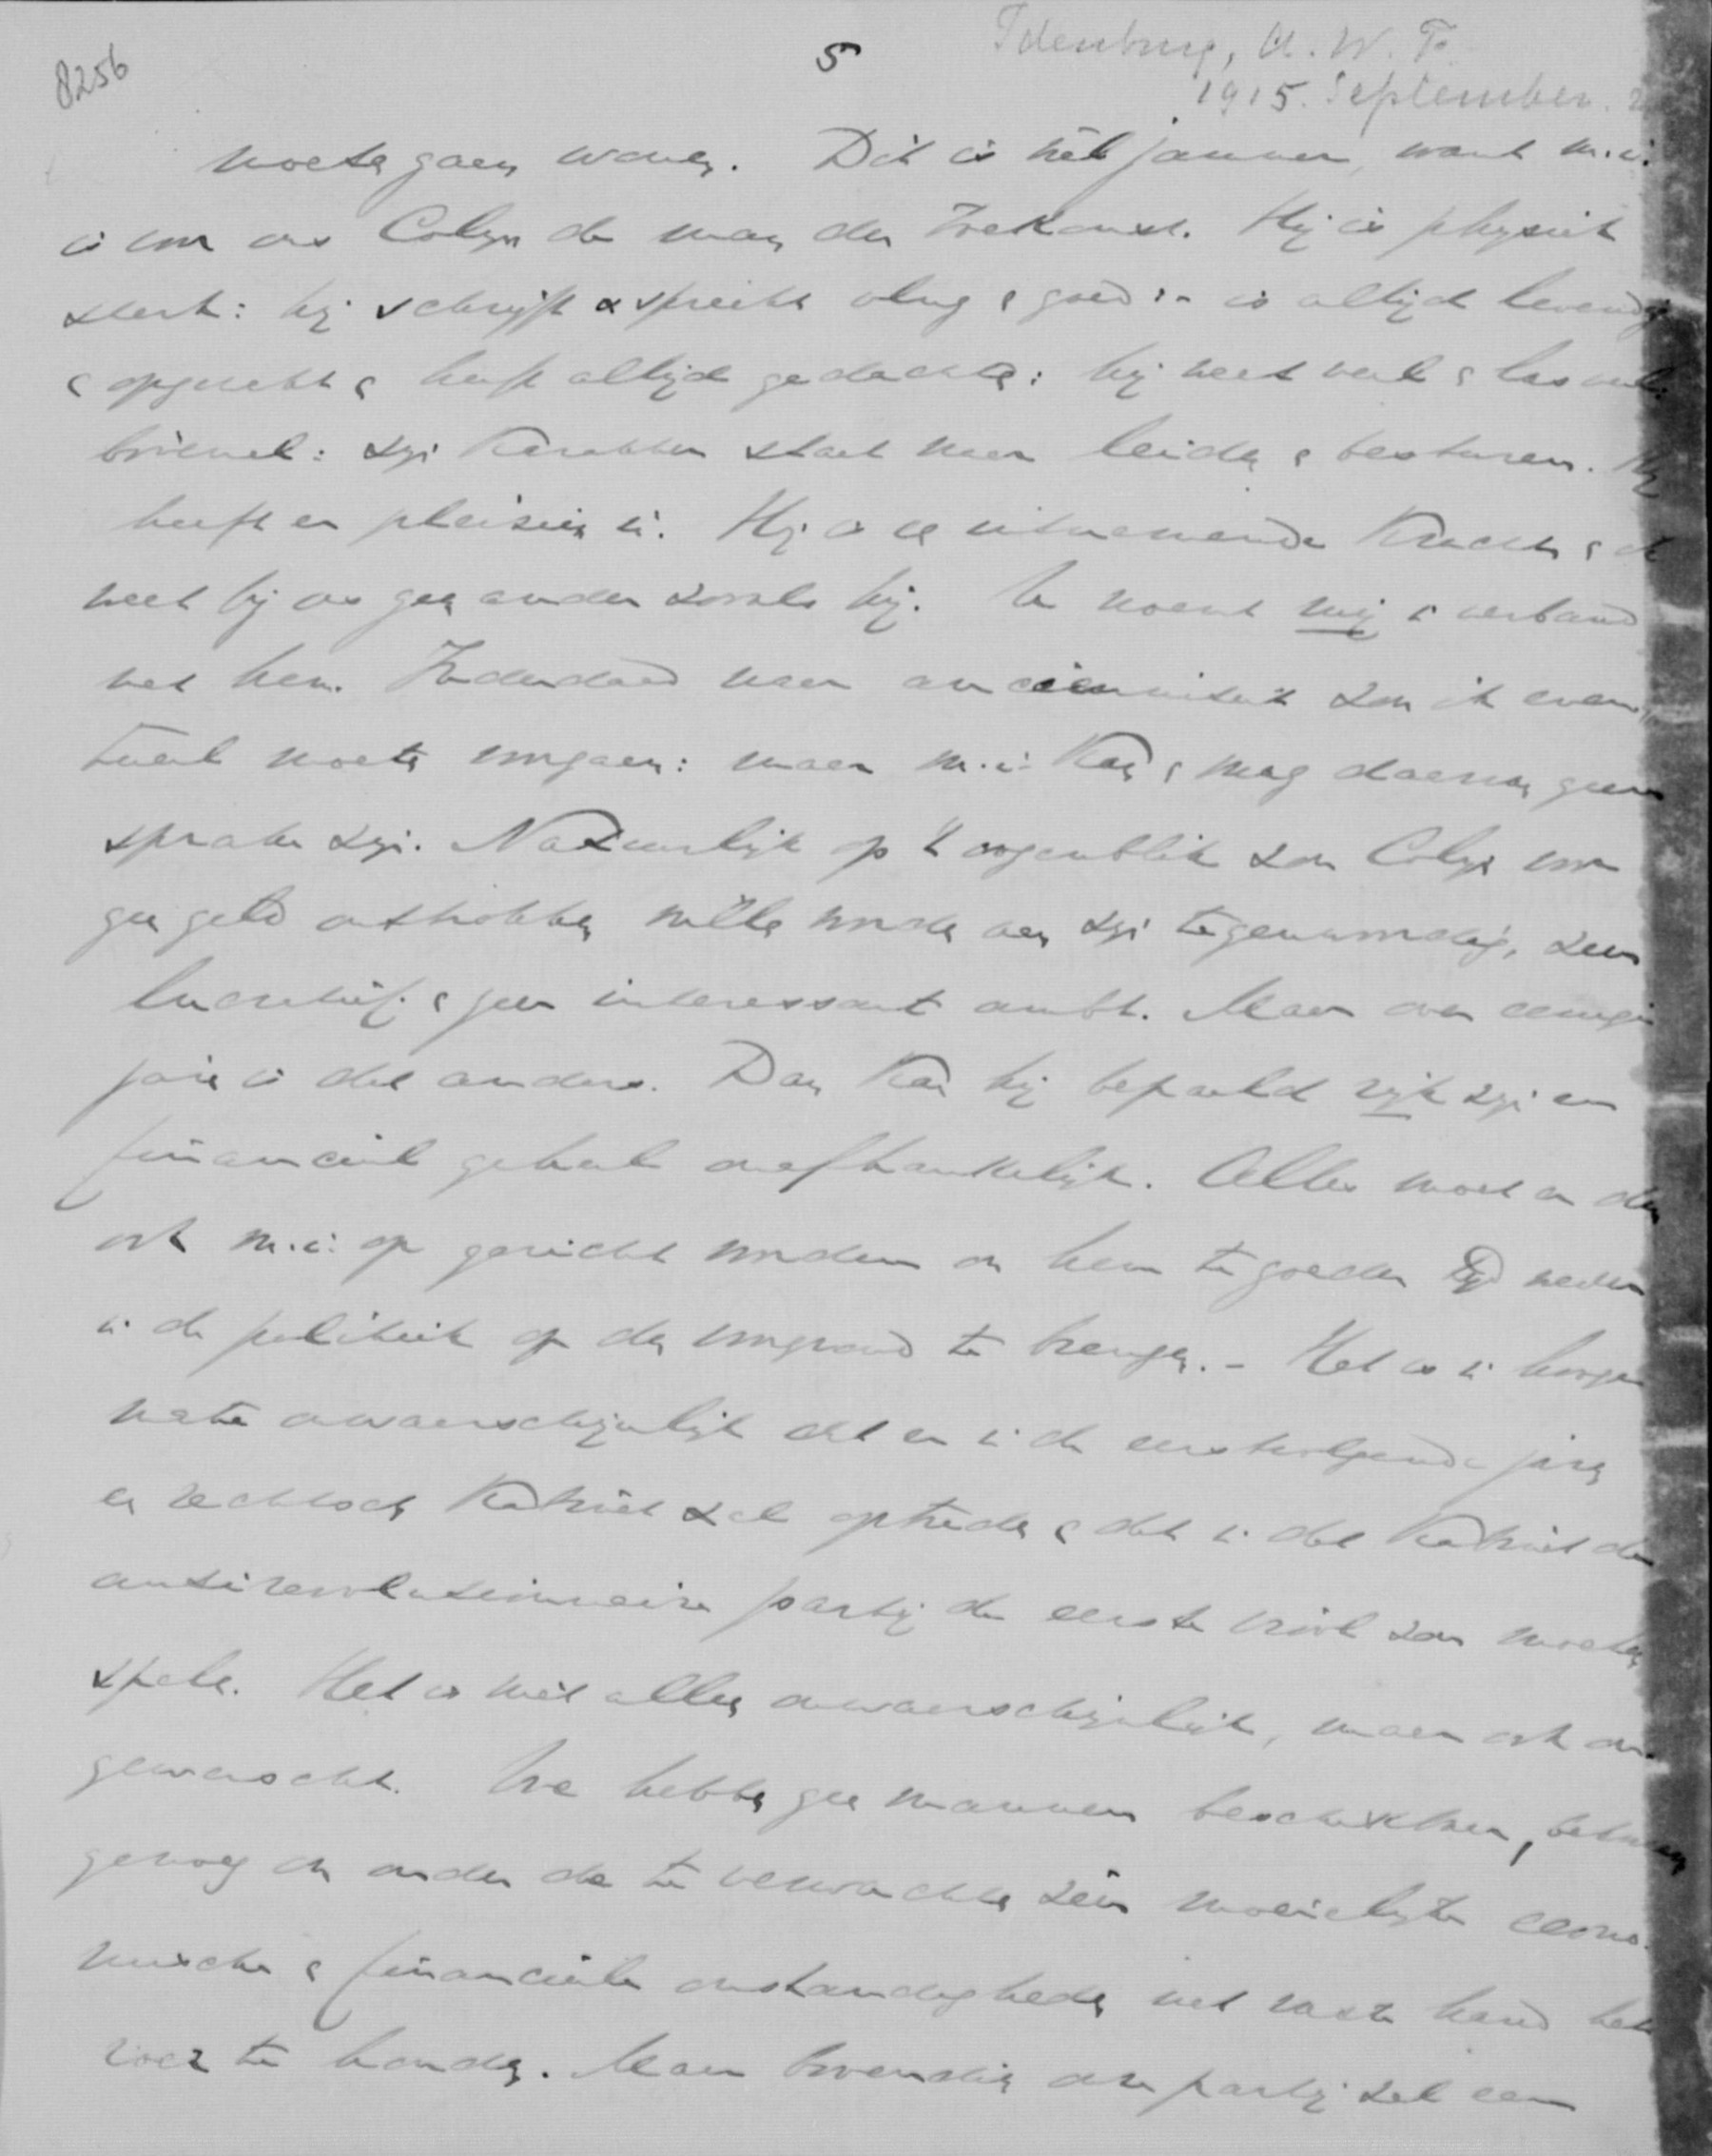 8256
5
Idenburg, A.W.F.
1915. September. 2
moeten gaan wonen. Dit is héél jammer, want m.i.
is voor ons Colijn de man der toekomst. Hij is physiek
sterk: hij schrijft & spreekt vlug & goed: is altijd levendig
& opgewekt & heeft altijd gedachten: hij weet veel & las veel:
bovenal: zijn karakter staat naar leiden & besturen. Hij
heeft er pleizier in. Hij is een uitnemende kracht & ik
weet bij ons geen ander zooals hij. U noemt mij in verband
met hem. Inderdaad naar ancienniteit zou ik even-
tueel moeten voorgaan: maar m.i. kan & mag daarvan geen
sprake zijn. Natuurlijk op 't oogenblik zou Colijn voor
geen geld onttrokken willen worden aan zijn tegenwoordig, zeer
lucratief & zeer interessant ambt. Maar over eenige
jaren is dat anders. Dan kan hij bepaald rijk zijn en
financieel geheel onafhankelijk. Alles moet er dan
ook m.i. op gericht worden om hem te goeder tijd weder
in de politiek op den voorgrond te brengen. - Het is in hooge
mate onwaarschijnlijk dat er in de eerstvolgende jaren
een rechtsch kabinet zal optreden & dat in dat kabinet de
antirevolutionaire partij de eerste viool zou moeten
spelen. Het is niet alleen onwaarschijnlijk, maar ook on-
gewenscht. We hebben geen mannen beschikbaar, bekwaam
genoeg om onder de te verwachten zéér moeielijke econo-
mische & financieele omstandigheden met vaste hand het
roer te houden. Maar bovendien onze partij zal een